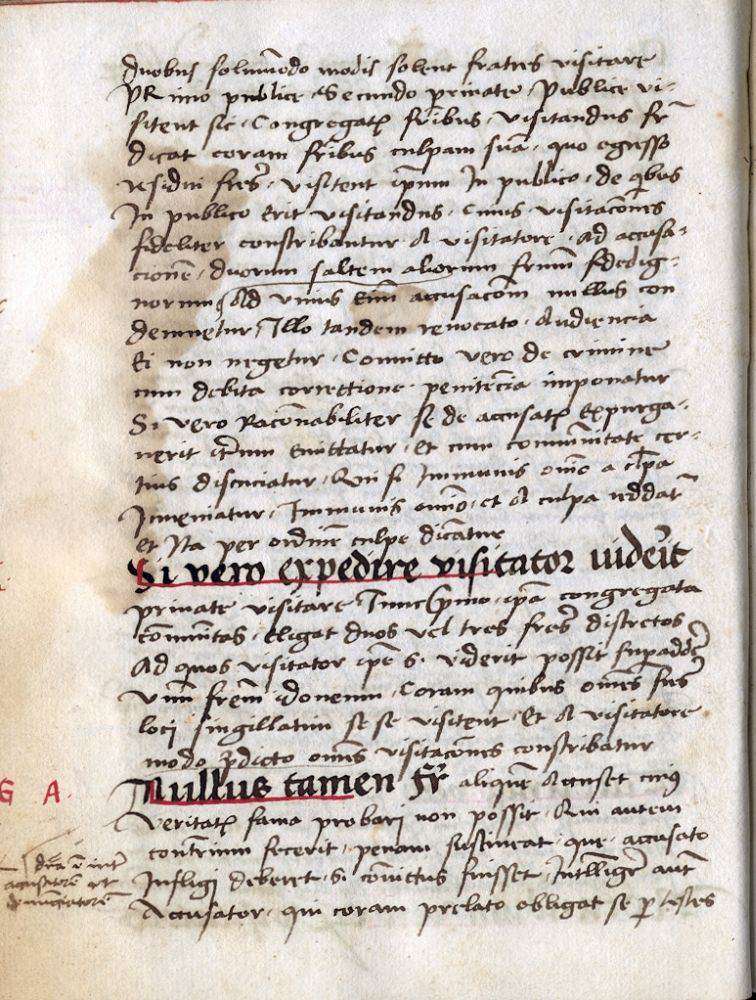 duobus solum̄odo modis solent fratres visitare
PRimo publice · Secundo private · Publice vi-
sitent sic · Congregatꝭ fr̄ibus · visitandus fr̄
dicat coram fr̄ibus culpam suā · quo egresso
residui fres̄ · visitent ip̄um In publico · de qi̇bus
In publico Erit visitandus · Cuius visitac̄ones
fideliter conscribantur A visitatore · Ad accusa-
cionē · duorum saltem aliorum fr̄um fidedig-
norum Ad unius Eni̅ accusac̄om nullus con
demnetur Illo tandem revocato · Audiencia
Ei non negetur · Convicto vero de crimine
cum debita correctione penitēcia imponatur
Si vero Rac̄onabiliter se de accusatꝭ Expurga-
verit · it̄um Emittatur · Et cum com̄unitate cer-
tius discuciatur · Qui si Immunis om̄o a cl̄pa
Inveniatur · Immunis om̄o · et A culpa reddat̄
et Ita per ordinē culpe dicatur
Si vero expedire visitator videri̅t
private visitare Tunc pͥmo · ip̄a congregata
com̄unitas · Eligat duos vel tres fres̄ discretos
Ad quos visitator ip̄e s· viderit possit supaddē
unū frem̄ idoneum · Coram quibus om̄es fres̄
loci singillatim se se visitent Et A visitatore
modo p̄dicto om̄es visitac̄ones conscribatur
Nullus tamen fr̄ aliquē Accuset cuiꝰ
Veritatꝭ fama probari non possit · Qui autem
cont̄rium fecerit · penam sustineat · que · accusato
Infligi deberet · Si co̅victus fuisset · Intelligr̄ aut̄
Accusator · qui coram prelato obligat se ꝑ testes
G A.
dr̄a ē int̄
accusatorē et
denunciatorē